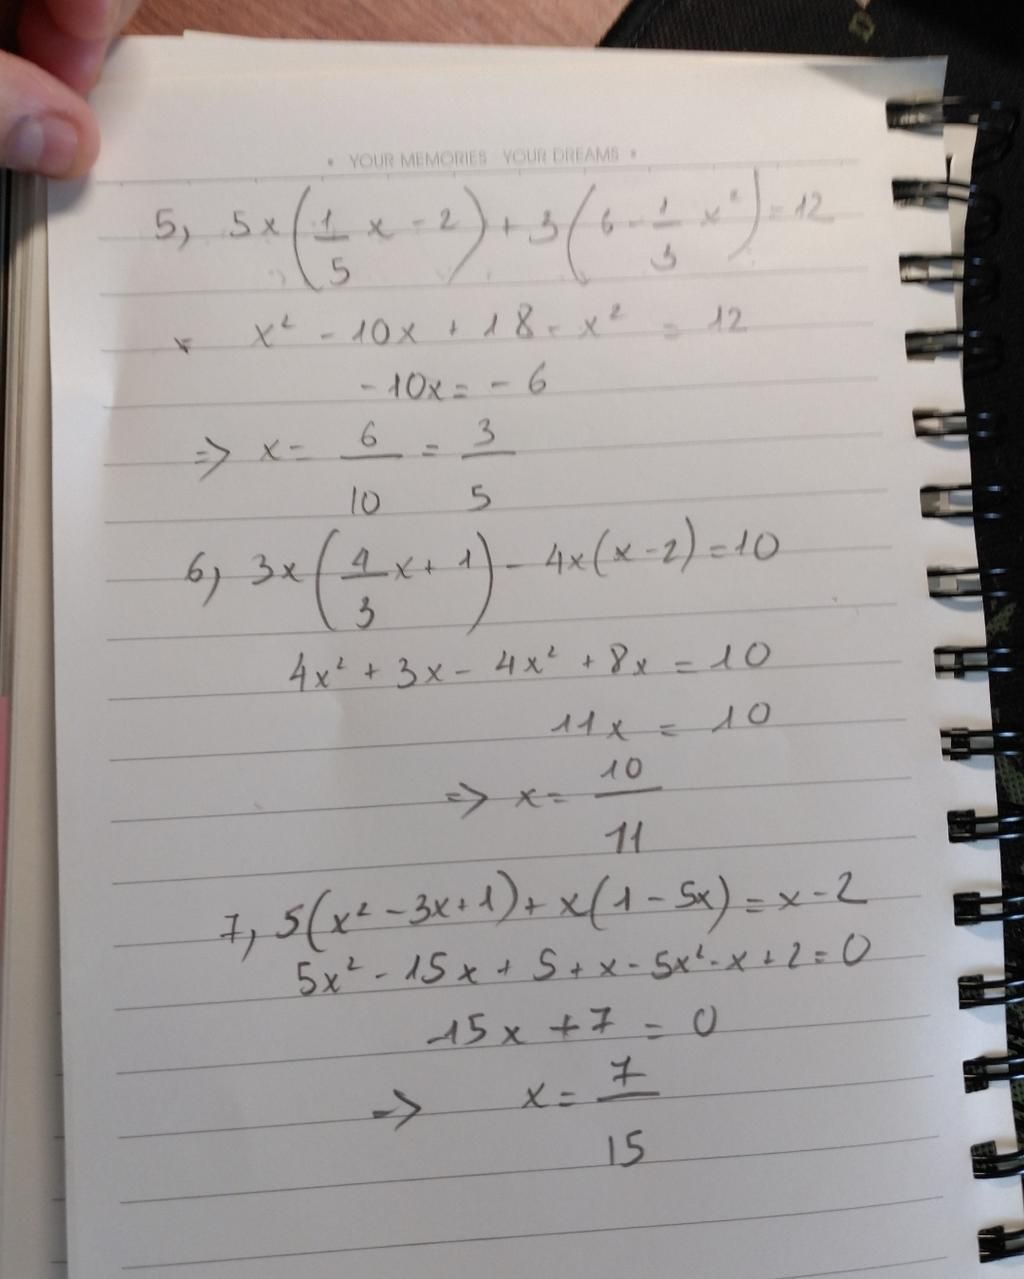 • YOUR MEMORIES YOUR DREAMS •
5, 5x(1/5 x - 2) + 3(6 - 1/3 x²) = 12
= x² - 10x + 18 - x² = 12
-10x = - 6
=> x = 6/10 = 3/5
6, 3x(4/3 x + 1) - 4x(x-2) = 10
4x² + 3x - 4x² + 8x = 10
11x = 10
=> x = 10/11
7, 5(x² - 3x + 1) + x(1 - 5x) = x - 2
5x² - 15x + 5 + x - 5x² - x + 2 = 0
-15x + 7 = 0
=> x = 7/15